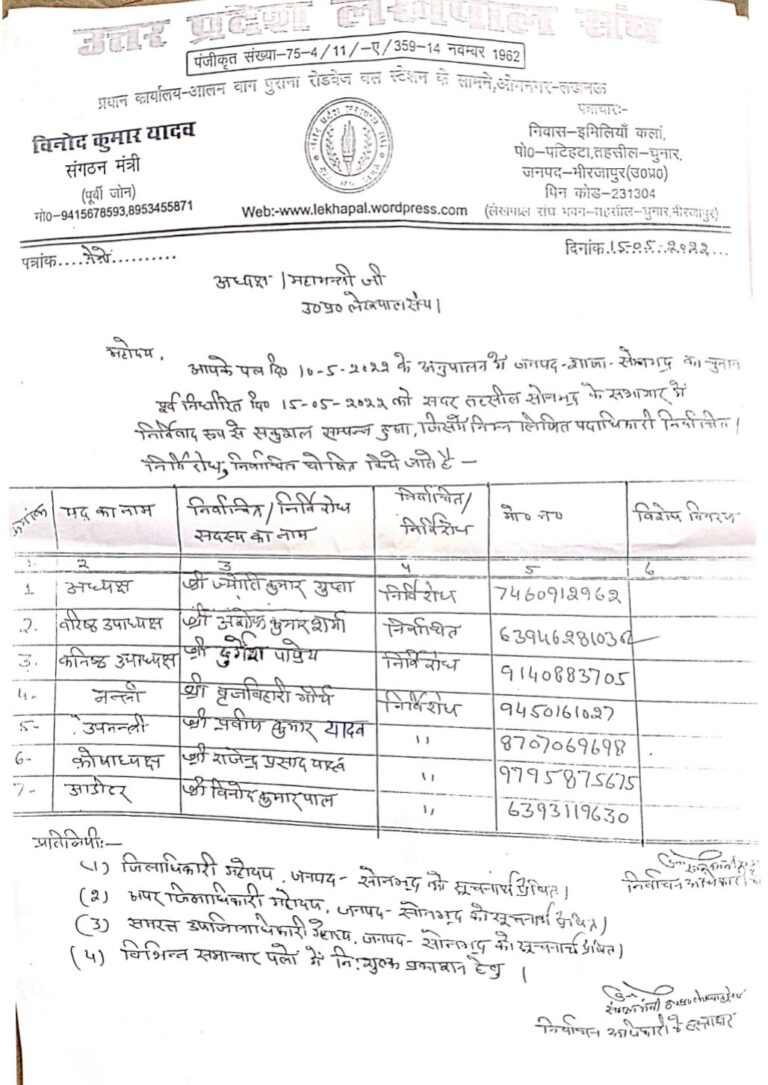 उत्तर प्रदेश लेखपाल संघ
पंजीकृत संख्या-75-4/11/-ए/359-14 नवम्बर 1962
प्रधान कार्यालय-आलम बाग पुराना रोडवेज बस स्टेशन के सामने,ओमनगर-लखनऊ
विनोद कुमार यादव
संगठन मंत्री
(पूर्वी जोन)
मो0-9415678593,8953455871
Web:-www.lekhapal.wordpress.com
पत्राचारः-
निवास-इमिलियाँ कलां,
पो0-पटिहटा,तहसील-चुनार,
जनपद-मीरजापुर(उ0प्र0)
पिन कोड-231304
(लेखपाल संघ भवन-तहसील-चुनार,मीरजापुर)
पत्रांक....मेमो..........
दिनांक.15-05-2022...
अध्यक्ष / महामन्त्री जी
उ0प्र0 लेखपाल संघ।
महोदय,
आपके पत्र दि0 10-5-2022 के अनुपालन में जनपद-शाखा-सोनभद्र का चुनाव
पूर्व निर्धारित दि0 15-05-2022 को सदर तहसील सोनभद्र के सभागार में
निर्विवाद रूप से सकुशल सम्पन्न हुआ, जिसमें निम्न लिखित पदाधिकारी निर्वाचित।
निर्विरोध, निर्वाचित घोषित किये जाते है —
क्रमांक पद का नाम निर्वाचित/निर्विरोध सदस्य का नाम निर्वाचित/निर्विरोध मो0 न0 विशेष विवरण
1 2 3 4 5 6
1 अध्यक्ष श्री ज्योति कुमार गुप्ता निर्विरोध 7460912962
2. वरिष्ठ उपाध्यक्ष श्री अशोक कुमार शर्मा निर्वाचित
3. कनिष्ठ उपाध्यक्ष श्री दुर्गेश पाण्डेय निर्विरोध 9140883705
4- मन्त्री श्री बृजविहारी मौर्य निर्विरोध 9450161027
5- उपमन्त्री श्री प्रवीण कुमार यादव ,, 8707069698
6- कोषाध्यक्ष श्री राजेन्द्र प्रसाद ,, 9795875675
7- आडीटर श्री विनोद कुमार पाल ,, 6393119630
प्रतिलिपी:—
(1) जिलाधिकारी महोदय, जनपद- सोनभद्र को सूचनार्थ प्रेषित।
(2) अपर जिलाधिकारी महोदय, जनपद- सोनभद्र को सूचनार्थ प्रेषित।
(3) समस्त उपजिलाधिकारी महोदय, जनपद- सोनभद्र को सूचनार्थ प्रेषित।
(4) विभिन्न समाचार पत्रो में नि:शुल्क प्रकाशन हेतु।
निर्वाचन अधिकारी
निर्वाचन अधिकारी के हस्ताक्षर